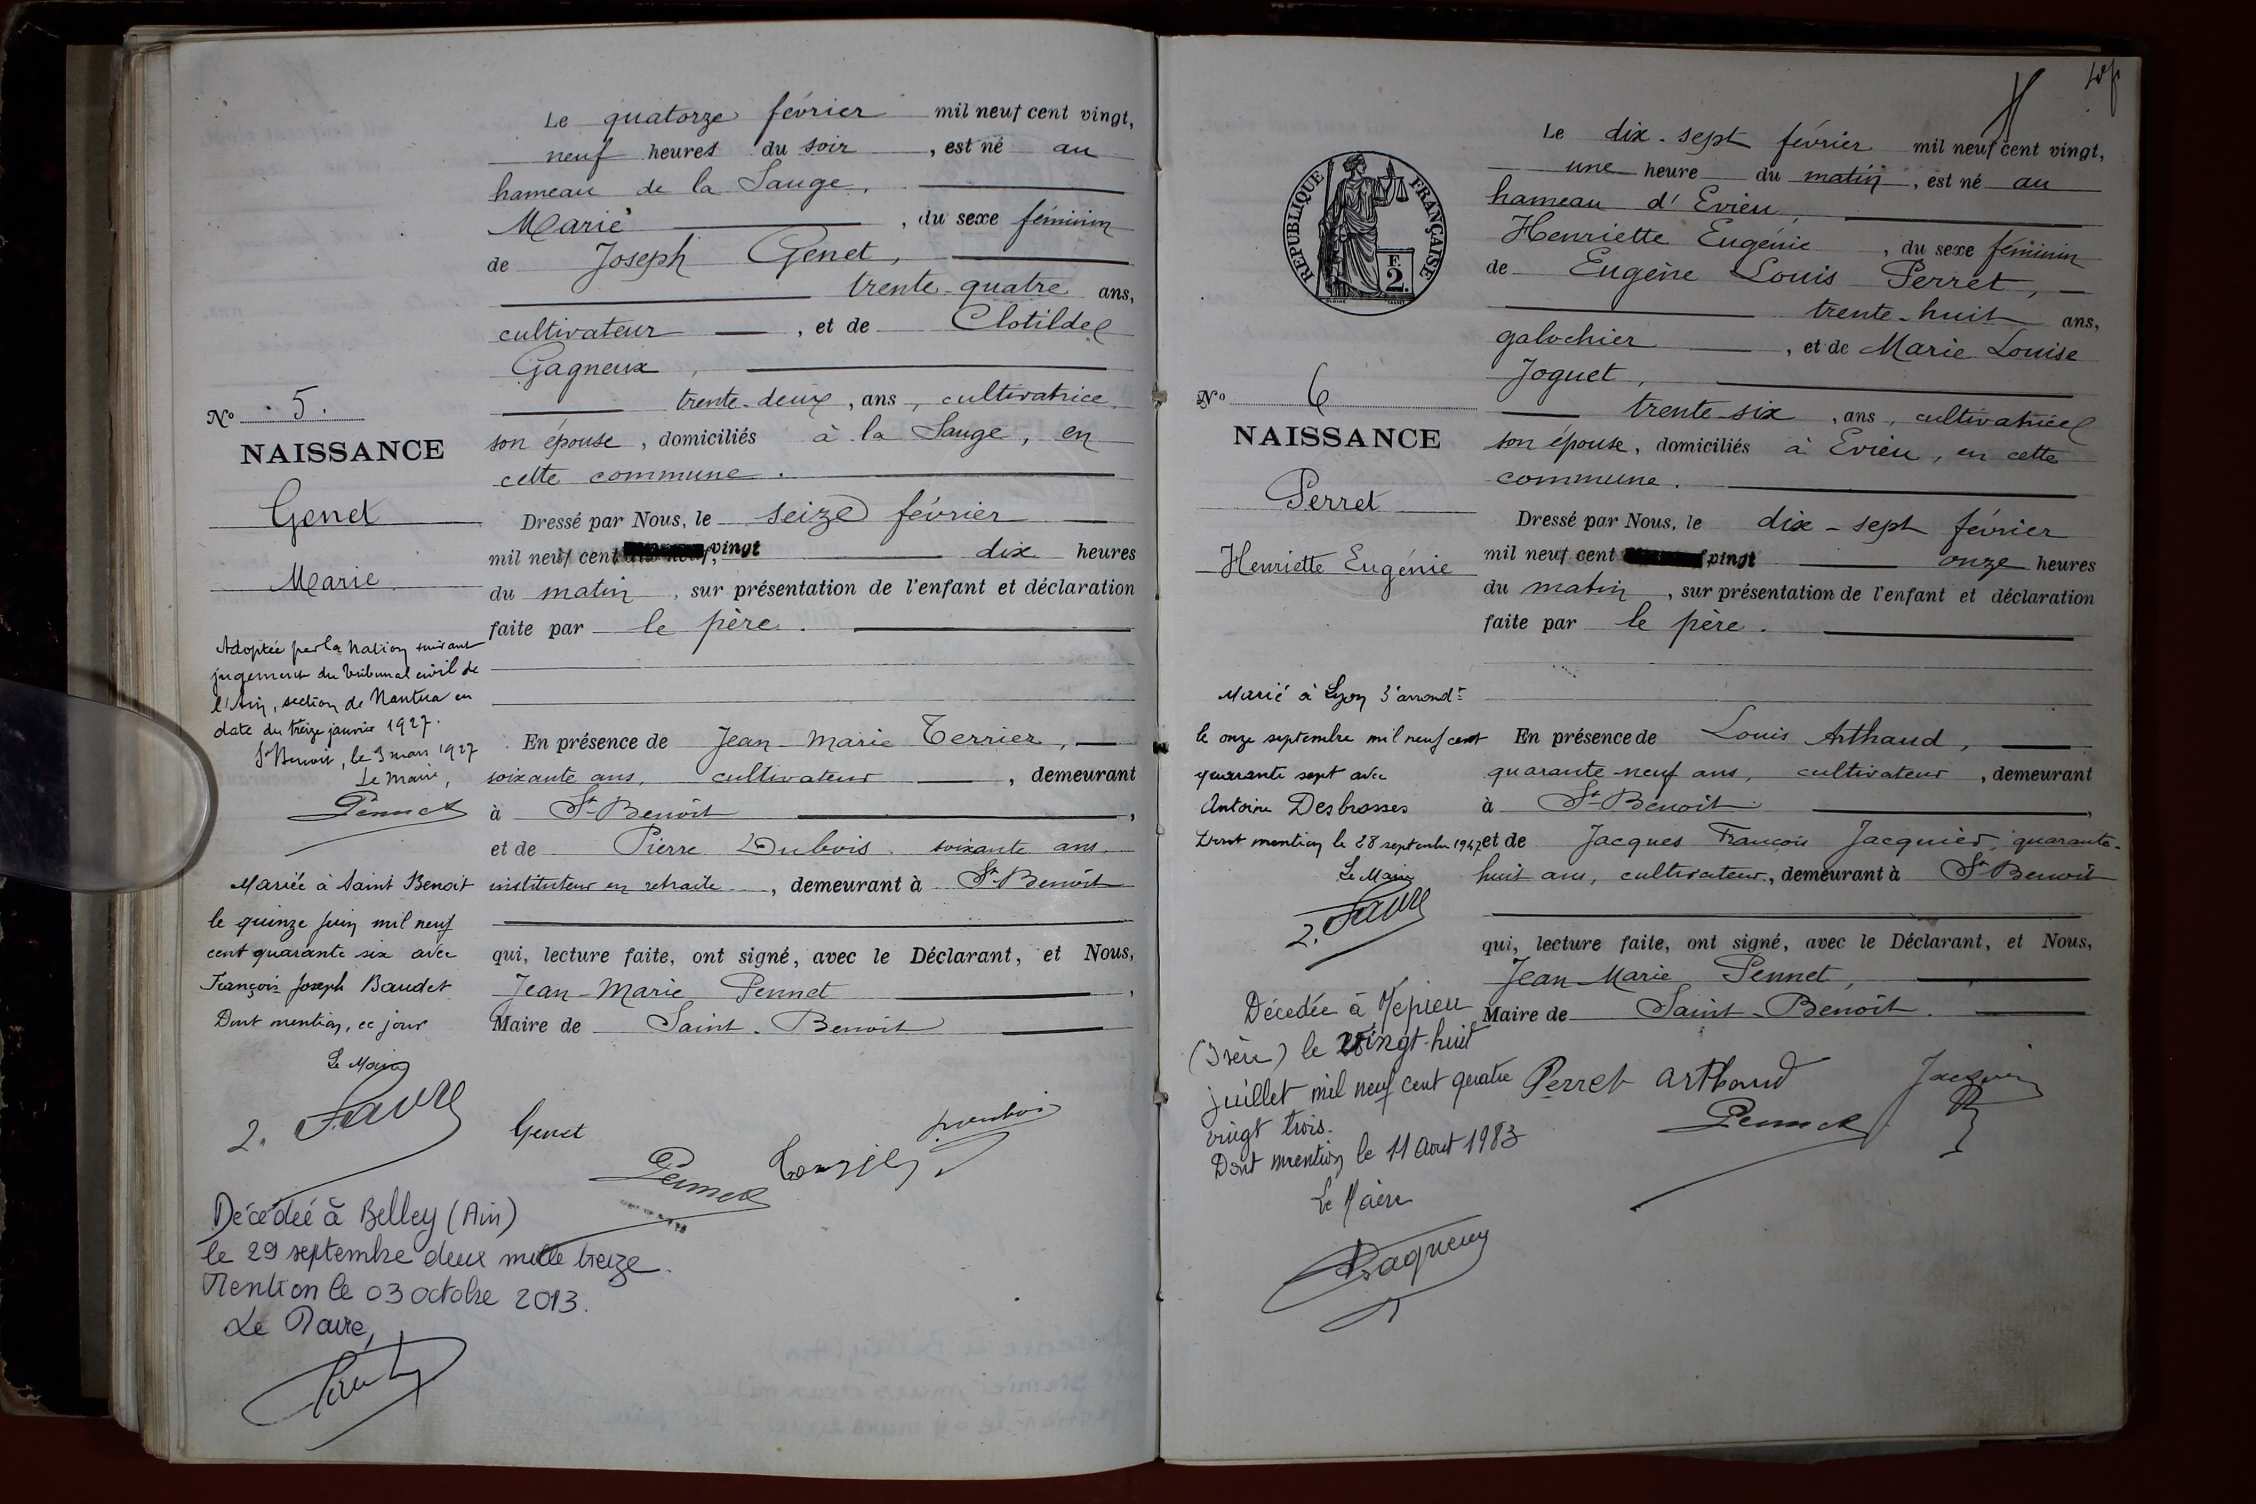 Le quatorze février mil neuf cent vingt,
neuf heures du soir, est né au
hameau de la Sauge,
Marie, du sexe féminin
de Joseph Genet,
trente-quatre ans,
cultivateur, et de Clotilde
Gagneux,
trente-deux, ans, cultivatrice
son épouse, domiciliés à la Sauge, en
cette commune.
Dressé par Nous, le seize février
mil neuf cent vingt dix heures
du matin, sur présentation de l'enfant et déclaration
faite par le père.
En présence de Jean-Marie Terrier,
soixante ans, cultivateur, demeurant
à St-Benoît,
et de Pierre Dubois soixante ans
instituteur en retraite, demeurant à St-Benoît
qui, lecture faite, ont signé, avec le Déclarant, et Nous,
Jean-Marie Pennet,
Maire de Saint-Benoît
Genet
Pennet
No 5.
NAISSANCE
Genet
Marie
Adoptée par la Nation suivant
jugement du tribunal civil de
l'Ain, section de Nantua en
date du treize janvier 1927.
St Benoit, le 3 mars 1927
Le Maire,
Pennet
Mariée à Saint Benoit
le quinze juin mil neuf
cent quarante six avec
François Joseph Baudet
Dont mention, ce jour
Le Maire
Décédée à Belley (Ain)
le 29 septembre deux mille treize.
Mention le 03 octobre 2013.
Le Maire,
RÉPUBLIQUE FRANÇAISE
F.
2.
Le dix-sept février mil neuf cent vingt,
une heure du matin, est né au
hameau d'Evieu,
Henriette Eugénie, du sexe féminin
de Eugène Louis Perret,
trente-huit ans,
galochier, et de Marie Louise
Joguet,
trente-six, ans, cultivatrice
son épouse, domiciliés à Evieu, en cette
commune.
Dressé par Nous, le dix-sept février
mil neuf cent vingt onze heures
du matin, sur présentation de l'enfant et déclaration
faite par le père.
En présence de Louis Arthaud,
quarante-neuf ans, cultivateur, demeurant
à St-Benoît,
et de Jacques François Jacquier, quarante-
huit ans, cultivateur, demeurant à St Benoît
qui, lecture faite, ont signé, avec le Déclarant, et Nous,
Jean-Marie Pennet,
Maire de Saint-Benoît.
Perret Arthaud Jacquier
Pennet
No 6
NAISSANCE
Perret
Henriette Eugénie
Marié à Lyon 3e arrondt
le onze septembre mil neuf cent
quarante sept avec
Antoine Desbrosses
Dont mention le 28 septembre 1947
Le Maire
Décédée à Mépieu
(Isère) le vingt-huit
juillet mil neuf cent quatre
vingt trois.
Dont mention le 11 août 1983
Le Maire